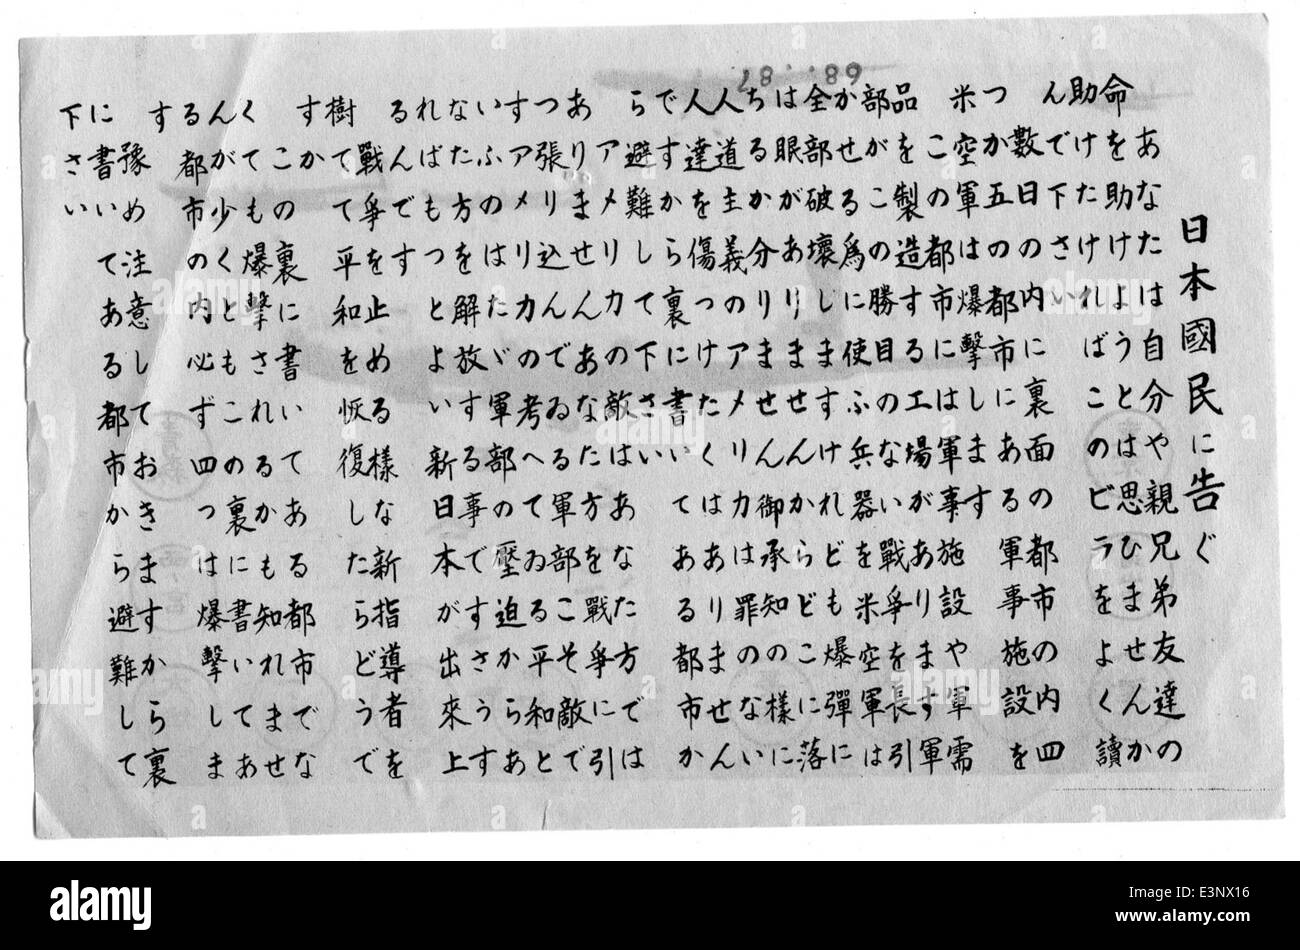 日本國民に告ぐ
あなたは自分や親兄弟友達の
命を助けようとは思ひませんか
助けたければこのビラをよく讀
んで下さい
數日の内に裏面の都市の内四
つか五つの都市にある軍事施設を
米空軍は爆擊します
この都市には軍事施設や軍需
品を製造する工場があります軍
部がこの勝目のない戰爭を長引
かせる為に使ふ兵器を米空軍は
全部破壞しますけれども爆彈に
は眼がありませんからどこに落
ちるか分りません御承知の様に
人道主義のアメリカは罪のない
人達を傷つけたくはありません
ですから裏に書いてある都市か
ら避難して下さい
アメリカの敵はあなた方では
ありませんあなた方を戰爭に引
つ張り込んでゐる軍部こそ敵で
すアメリカの考へてゐる平和と
いふのはたゞ軍部の壓迫からあ
なた方を解放する事ですさうす
ればもつとよい新日本が出來上
るんです
戰爭を止める樣な新指導者を
樹てて平和を恢復したらどうで
すか
この裏に書いてある都市でな
くても爆擊されるかも知れませ
んが少くともこの裏に書いてあ
る都市の内必ず四つは爆擊しま
す
豫め注意しておきますから裏
に書いてある都市から避難して
下さい
alamy
E3NX16
www.alamy.com